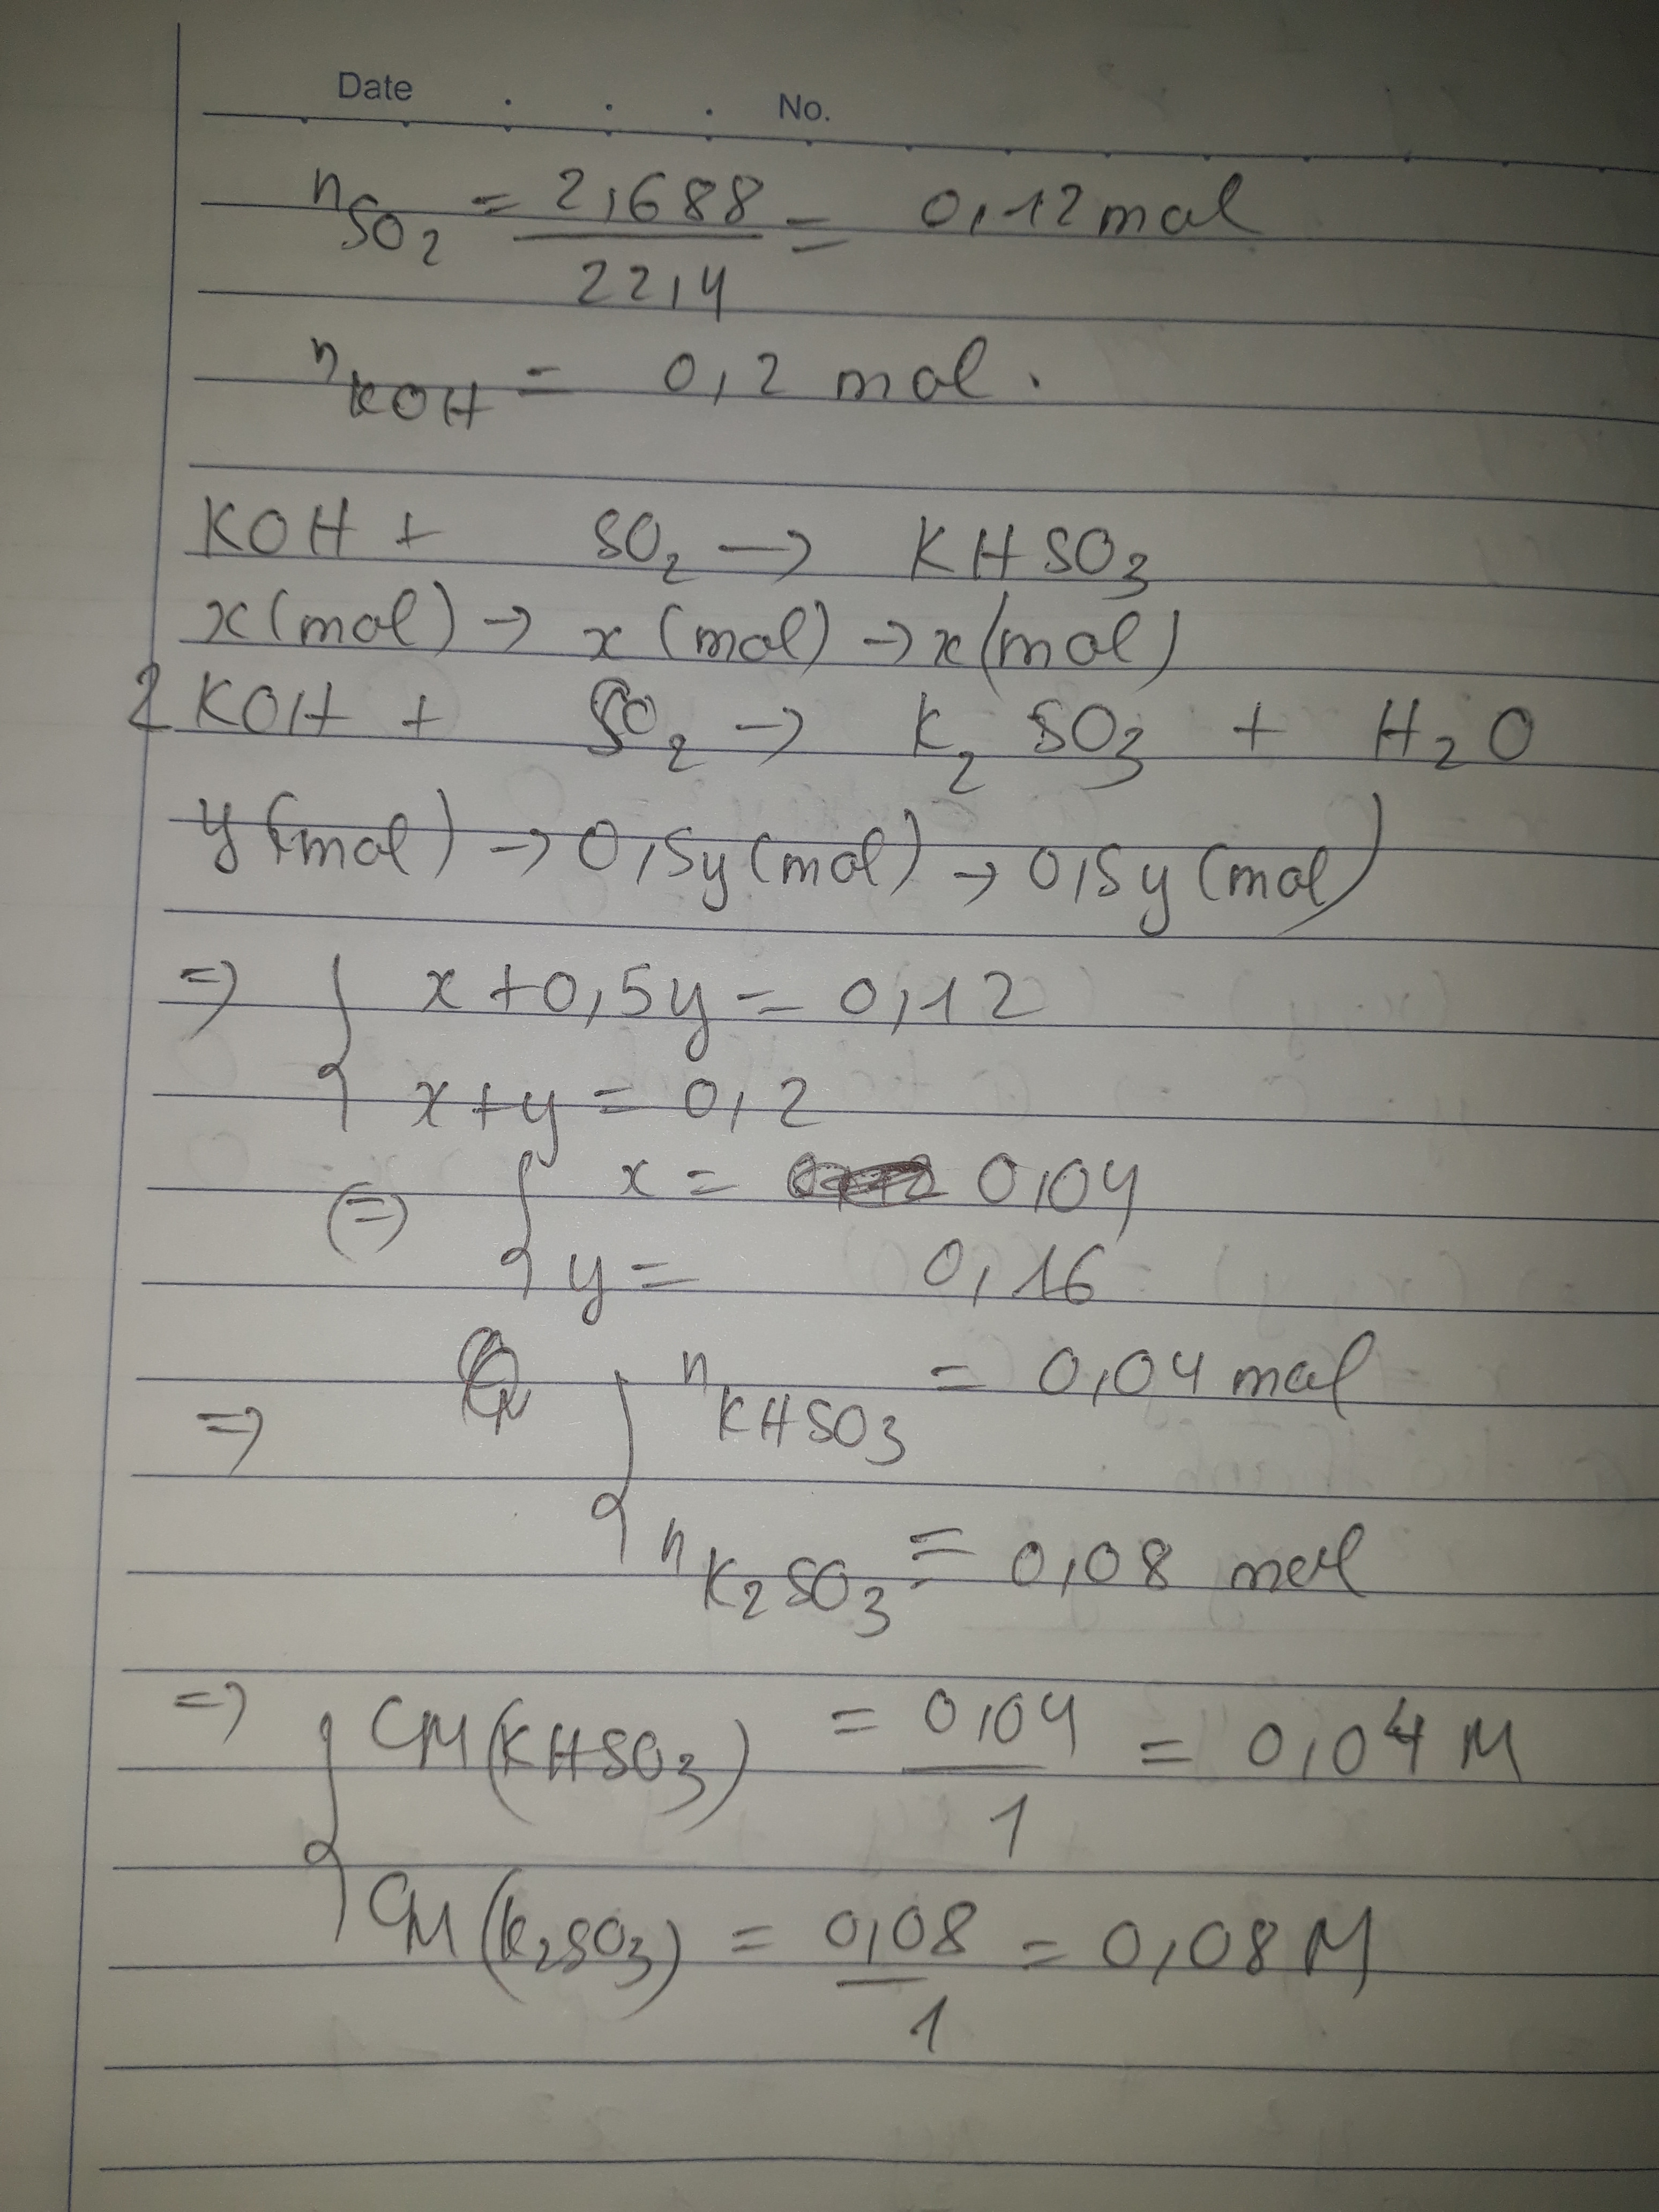 Date . . . No.
nSO2 = 2,688/22,4 = 0,12 mol
nKOH = 0,2 mol.
KOH + SO2 → KHSO3
x (mol) → x (mol) → x (mol)
2KOH + SO2 → K2SO3 + H2O
y (mol) → 0,5y (mol) → 0,5y (mol)
=> { x + 0,5y = 0,12
x + y = 0,2
(=) { x = 0,04
y = 0,16
=> { nKHSO3 = 0,04 mol
nK2SO3 = 0,08 mol
=> { CM(KHSO3) = 0,04/1 = 0,04 M
CM(K2SO3) = 0,08/1 = 0,08 M